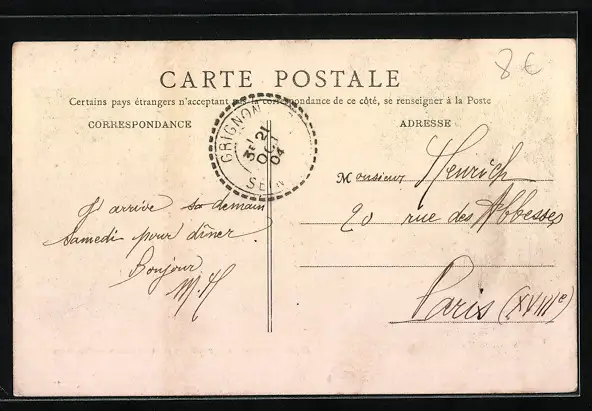 8 €
CARTE POSTALE
Certains pays étrangers n'acceptant pas la correspondance de ce côté, se renseigner à la Poste
CORRESPONDANCE
ADRESSE
GRIGNON
21
OCT
04
SEINE
J'arrive demain
Samedi pour dîner
Bonjour
M. H
Monsieur Henrich
20 rue des Abbesses
Paris (XVIIIe)